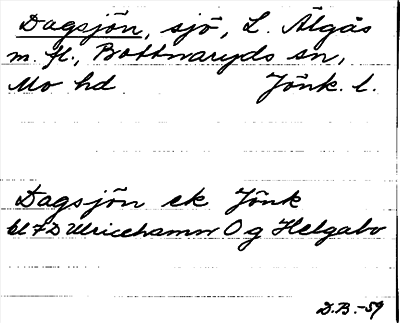 Dagsjön, sjö, L. Älgås
m. fl., Bottnaryds sn,
Mo hd. Jönk. l.
Dagsjön ek Jönk
bl 7D Ulricehamn O g Helgabo
D.B.-59